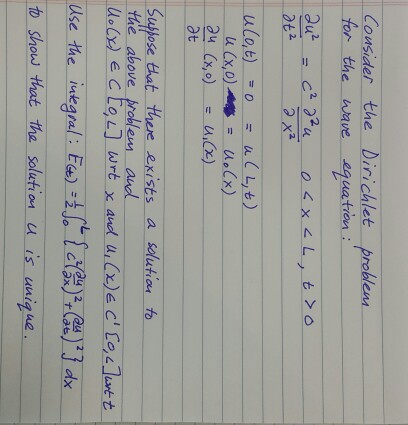 Consider the Dirichlet problem
for the wave equation:
∂u²/∂t² = c² ∂²u/∂x² 0 < x < L, t > 0
u(0,t) = 0 = u(L,t)
u(x,0) = u₀(x)
∂u/∂t (x,0) = u₁(x)
Suppose that there exists a solution to
the above problem and
u₀(x) ∈ C¹[0,L] wrt x and u₁(x) ∈ C¹[0,L] wrt t
Use the integral: E(t) = ½∫₀ᴸ { c²(∂u/∂x)² + (∂u/∂t)² } dx
to show that the solution u is unique.